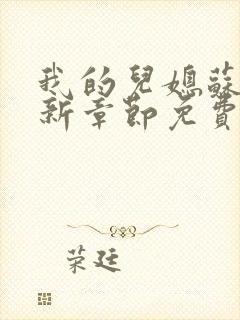 我的兒媳蘇
新章節免費
荣廷